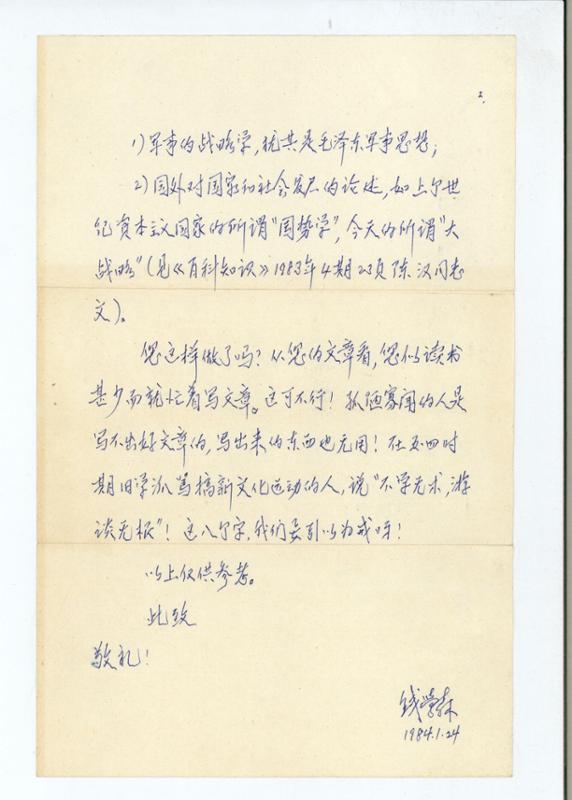 2.
1)军事的战略学,尤其是毛泽东军事思想;
2)国外对国家和社会发展的论述,如上个世
纪资本主义国家的所谓“国势学”,今天的所谓“大
战略”(见《百科知识》1983年4期23页陈汉同志
文)。
您这样做了吗?从您的文章看,您似读书
甚少而就忙着写文章。这可不行!孤陋寡闻的人是
写不出好文章的,写出来的东西也无用!在五四时
期旧学派骂搞新文化运动的人,说“不学无术,游
谈无根”!这八个字,我们要引以为戒呀!
以上仅供参考。
此致
敬礼!
钱学森
1984.1.24